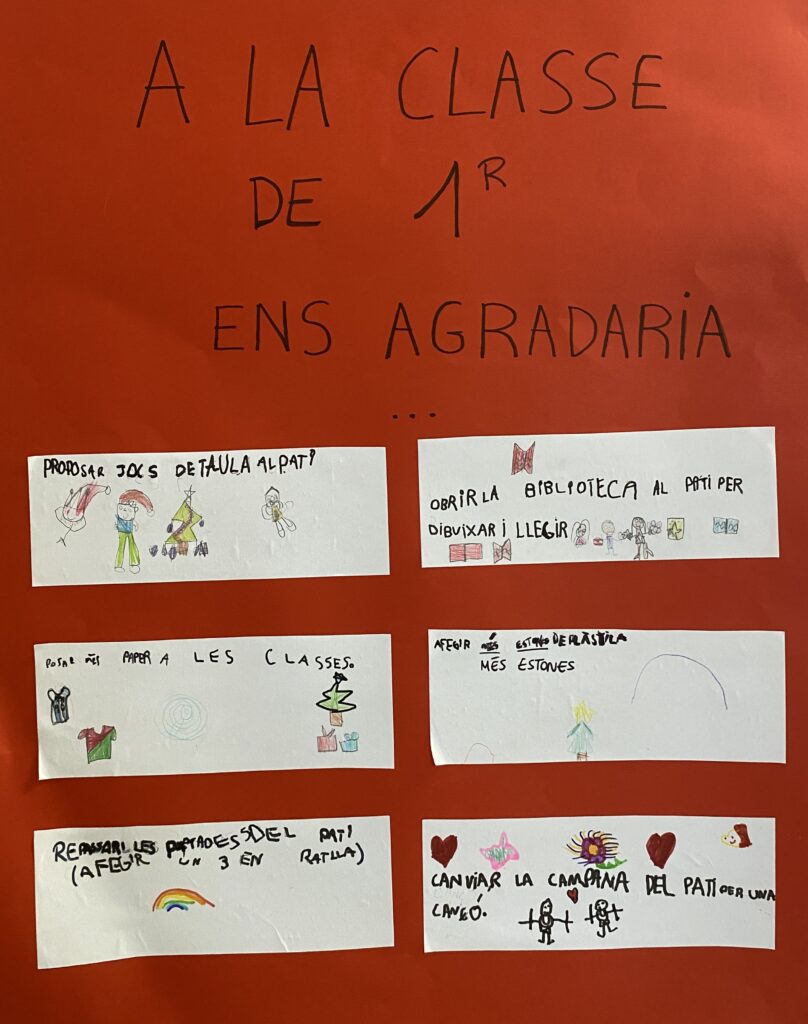 A LA CLASSE
DE 1R
ENS AGRADARIA
...
PROPOSAR JOCS DE TAULA AL PATI
OBRIR LA BIBLIOTECA AL PATI PER
DIBUIXAR I LLEGIR
POSAR MÉS PAPER A LES CLASSES.
AFEGIR MÉS ESTONES DE PLÀSTILA
MÉS ESTONES
REPASSAR LES PINTADES DEL PATI
(AFEGIR UN 3 EN RATLLA)
CANVIAR LA CAMPANA DEL PATI PER UNA
CANÇÓ.